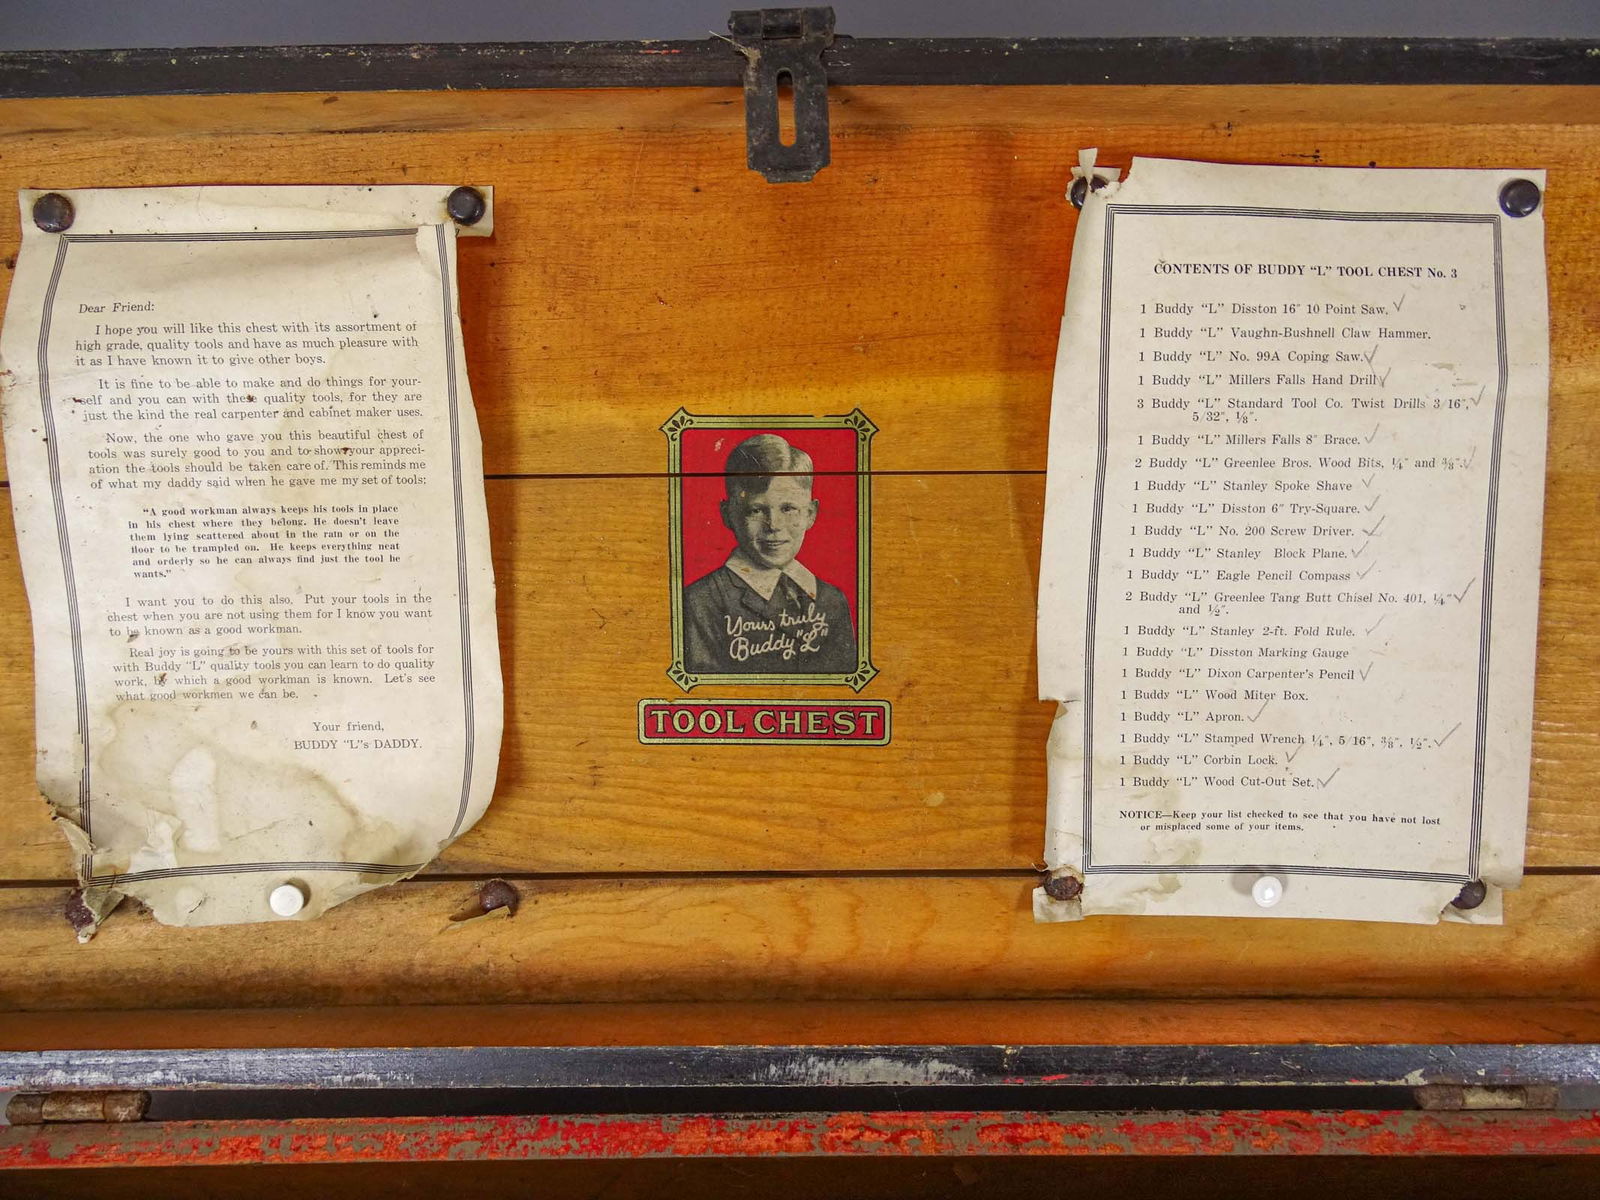 Dear Friend:
I hope you will like this chest with its assortment of
high grade, quality tools and have as much pleasure with
it as I have known it to give other boys.
It is fine to be able to make and do things for your-
self and you can with these quality tools, for they are
just the kind the real carpenter and cabinet maker uses.
Now, the one who gave you this beautiful chest of
tools was surely good to you and to show your appreci-
ation the tools should be taken care of. This reminds me
of what my daddy said when he gave me my set of tools:
"A good workman always keeps his tools in place
in his chest where they belong. He doesn't leave
them lying scattered about in the rain or on the
floor to be trampled on. He keeps everything neat
and orderly so he can always find just the tool he
wants."
I want you to do this also. Put your tools in the
chest when you are not using them for I know you want
to be known as a good workman.
Real joy is going to be yours with this set of tools for
with Buddy "L" quality tools you can learn to do quality
work, by which a good workman is known. Let's see
what good workmen we can be.
Your friend,
BUDDY "L"s DADDY.
Yours truly
Buddy "L"
TOOL CHEST
CONTENTS OF BUDDY "L" TOOL CHEST No. 3
1 Buddy "L" Disston 16" 10 Point Saw.
1 Buddy "L" Vaughn-Bushnell Claw Hammer.
1 Buddy "L" No. 99A Coping Saw.
1 Buddy "L" Millers Falls Hand Drill
3 Buddy "L" Standard Tool Co. Twist Drills 3/16",
5/32", ⅛".
1 Buddy "L" Millers Falls 8" Brace.
2 Buddy "L" Greenlee Bros. Wood Bits, ¼" and ⅜".
1 Buddy "L" Stanley Spoke Shave
1 Buddy "L" Disston 6" Try-Square.
1 Buddy "L" No. 200 Screw Driver.
1 Buddy "L" Stanley Block Plane.
1 Buddy "L" Eagle Pencil Compass
2 Buddy "L" Greenlee Tang Butt Chisel No. 401, ¼"
and ½".
1 Buddy "L" Stanley 2-ft. Fold Rule.
1 Buddy "L" Disston Marking Gauge
1 Buddy "L" Dixon Carpenter's Pencil
1 Buddy "L" Wood Miter Box.
1 Buddy "L" Apron.
1 Buddy "L" Stamped Wrench ¼", 5/16", ⅜", ½".
1 Buddy "L" Corbin Lock.
1 Buddy "L" Wood Cut-Out Set.
NOTICE—Keep your list checked to see that you have not lost
or misplaced some of your items.